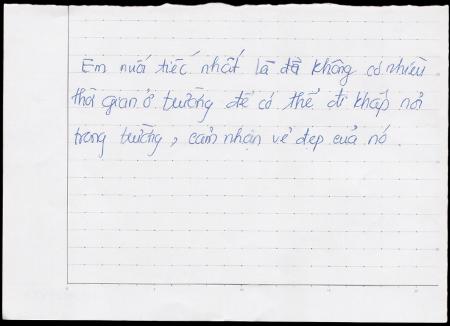 Em nuối tiếc nhất là đã không có nhiều
thời gian ở trường để có thể đi khắp nơi
trong trường, cảm nhận vẻ đẹp của nó